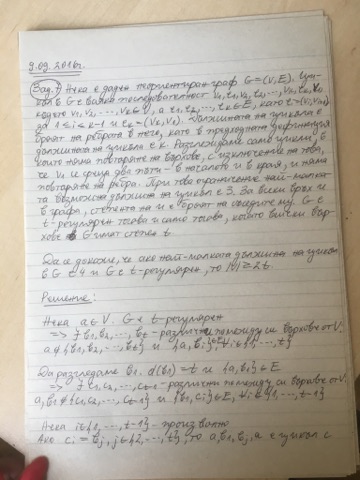 9.09.2016г.
Зад. 7 Нека е даден неориентиран граф G=(V,E). Цикъл в G е всяка последователност v₁, e₁, v₂, e₂, ..., vₖ, eₖ, v₁
където v₁, v₂, ..., vₖ ∈ V, а e₁, e₂, ..., eₖ ∈ E, като eᵢ=(vᵢ, vᵢ₊₁)
за 1 ≤ i ≤ k-1 и eₖ = (vₖ, v₁). Дължината на цикъла е
броят на ребрата в него, като в предходната дефиниция
дължината на цикъла е k. Разглеждаме само цикли, в
които няма повтаряне на върхове, с изключение на това,
че v₁ се среща два пъти – в началото и в края, и няма
повтаряне на ребра. При това ограничение най-малката
възможна дължина на цикъл е 3. За всеки връх u
в графа, степента на u е броят на съседите му. G е
t-регулярен тогава и само тогава, когато всички вър-
хове в G имат степен t.
Да се докаже, че ако най-малката дължина на цикъл
в G е 4 и G е t-регулярен, то |V| ≥ 2t.
Решение:
Нека a ∈ V. G е t-регулярен
=> ∃ b₁, b₂, ..., bₜ - различни помежду си върхове от V:
a ∉ {b₁, b₂, ..., bₜ} и {a, bᵢ} ∈ E, ∀i ∈ {1, ..., t}
Да разгледаме b₁. d(b₁) = t и {a, b₁} ∈ E
=> ∃ c₁, c₂, ..., cₜ₋₁ - различни помежду си върхове от V:
a, b₁ ∉ {c₁, c₂, ..., cₜ₋₁} и {b₁, cᵢ} ∈ E, ∀i ∈ {1, ..., t-1}
Нека i ∈ {1, ..., t-1} - произволно
Ако cᵢ = bⱼ, j ∈ {2, ..., t}, то a, b₁, bⱼ, a е цикъл с